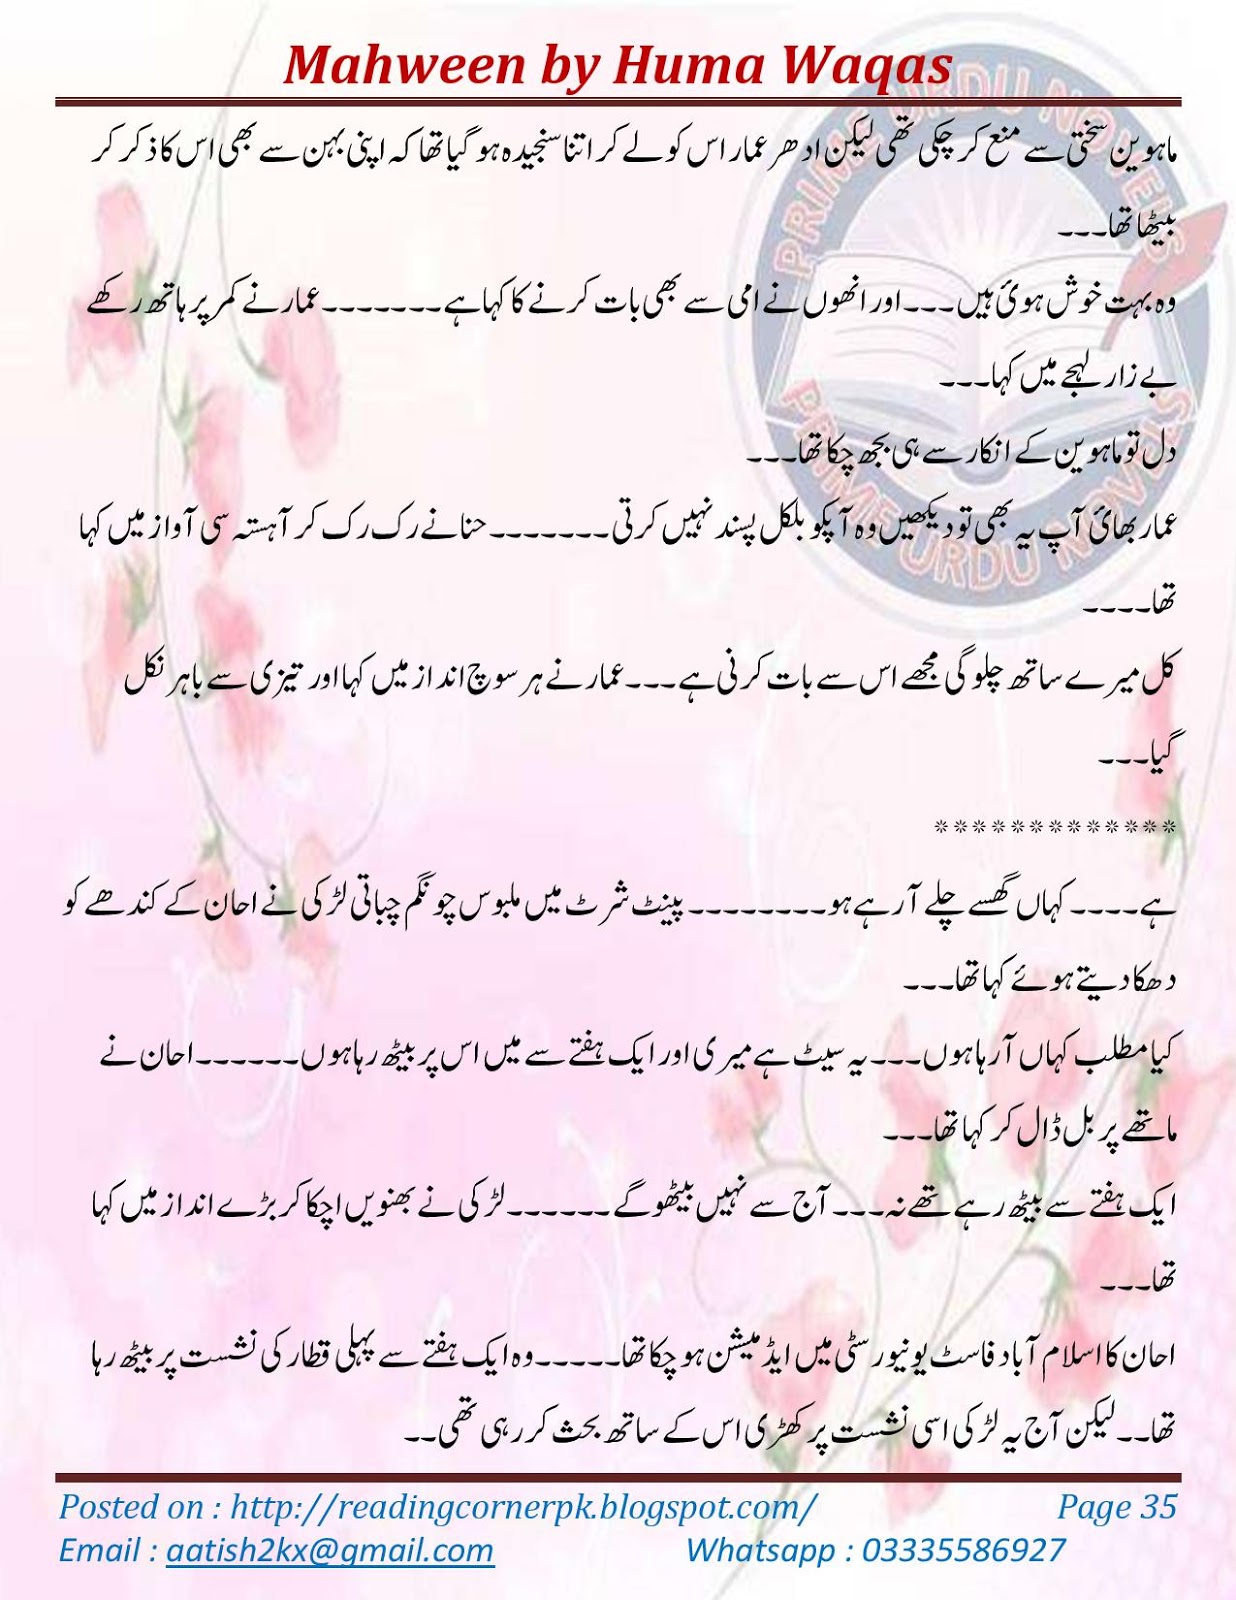 Mahween by Huma Waqas
ماہوین سختی سے منع کر چکی تھی لیکن ادھر عمار اس کو لے کر اتنا سنجیدہ ہو گیا تھا کہ اپنی بہن سے بھی اس کا ذکر کر
بیٹھا تھا۔۔۔
وہ بہت خوش ہوئ ہیں۔۔۔ اور انھوں نے امی سے بھی بات کرنے کا کہا ہے۔۔۔۔۔۔۔ عمار نے کمر پر ہاتھ رکھے
بے زار لہجے میں کہا۔۔۔
دل تو ماہوین کے انکار سے ہی بجھ چکا تھا۔۔۔
عمار بھائ آپ یہ بھی تو دیکھیں وہ آپکو بلکل پسند نہیں کرتی۔۔۔۔۔۔۔ حنا نے رک رک کر آہستہ سی آواز میں کہا
تھا۔۔۔۔
کل میرے ساتھ چلو گی مجھے اس سے بات کرنی ہے۔۔۔ عمار نے ہر سوچ انداز میں کہا اور تیزی سے باہر نکل
گیا۔۔۔
*************
ہے۔۔۔۔ کہاں گھسے چلے آ رہے ہو۔۔۔۔۔۔۔۔ پینٹ شرٹ میں ملبوس چونگم چباتی لڑکی نے احان کے کندھے کو
دھکا دیتے ہوئے کہا تھا۔۔۔
کیا مطلب کہاں آ رہا ہوں۔۔۔ یہ سیٹ ہے میری اور ایک ہفتے سے میں اس پر بیٹھ رہا ہوں۔۔۔۔۔۔ احان نے
ماتھے پر بل ڈال کر کہا تھا۔۔۔
ایک ہفتے سے بیٹھ رہے تھے نہ۔۔۔ آج سے نہیں بیٹھو گے۔۔۔۔۔۔ لڑکی نے بھنویں اچکا کر بڑے انداز میں کہا
تھا۔۔۔
احان کا اسلام آباد فاسٹ یونیورسٹی میں ایڈمیشن ہو چکا تھا۔۔۔۔۔ وہ ایک ہفتے سے پہلی قطار کی نشست پر بیٹھ رہا
تھا۔۔ لیکن آج یہ لڑکی اسی نشست پر کھڑی اس کے ساتھ بحث کر رہی تھی۔۔
PRIME URDU NOVELS
PRIME URDU NOVELS
Posted on : http://readingcornerpk.blogspot.com/ Page 35
Email : aatish2kx@gmail.com Whatsapp : 03335586927